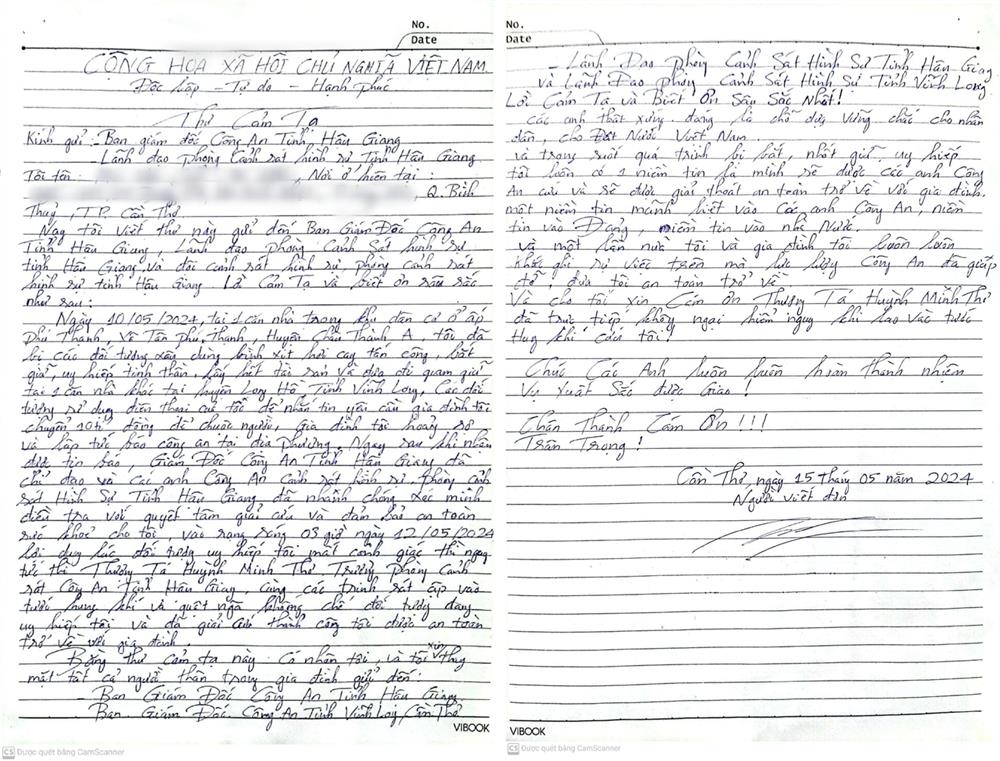 No.
Date
CỘNG HÒA XÃ HỘI CHỦ NGHĨA VIỆT NAM.
Độc lập - Tự do - Hạnh phúc
Thư Cảm Tạ
Kính gửi - Ban giám đốc Công An Tỉnh Hậu Giang
- Lãnh đạo phòng Cảnh sát hình sự Tỉnh Hậu Giang
Tôi tên : , Nơi ở hiện tại :
, Q. Bình
Thuỷ, TP. Cần Thơ.
Nay tôi viết thư này gửi đến Ban Giám Đốc Công An
Tỉnh Hậu Giang, Lãnh đạo phòng Cảnh Sát hình sự
tỉnh Hậu Giang và đội cảnh sát hình sự phòng cảnh sát
hình sự tỉnh Hậu Giang. Lời Cảm Tạ và biết ơn sâu sắc
như sau :
Ngày 10/05/2024, tại 1 căn nhà trong khu dân cư ở ấp
Phú Thạnh, Tân Phú Thạnh, Huyện Châu Thành A, tôi đã
bị các đối tượng dùng bình xịt hơi cay tấn công, bắt
giữ, uy hiếp tinh thần, lấy hết tài sản và đưa đi giam giữ
tại 1 căn nhà khác tại huyện Long Hồ Tỉnh Vĩnh Long, Các đối
tượng sử dụng điện thoại của tôi để nhắn tin yêu cầu gia đình tôi
chuyển 10 tỉ đồng để chuộc người, Gia đình tôi hoảng sợ
và lập tức báo công an tại địa phương, Ngay sau khi nhận
được tin báo, Giám Đốc Công An Tỉnh Hậu Giang đã
chỉ đạo và các anh Công An Cảnh sát hình sự phòng cảnh
sát Hình Sự Tỉnh Hậu Giang đã nhanh chóng xác minh
điều tra với quyết tâm giải cứu và đảm bảo an toàn
sức khoẻ cho tôi, vào rạng sáng 03 giờ ngày 12/05/2024
lợi dụng lúc đối tượng uy hiếp tôi mất cảnh giác thì ngay
tức thì Thượng Tá Huỳnh Minh Thơ Trưởng Phòng Cảnh
sát Công An Tỉnh Hậu Giang, cùng các trinh sát ập vào
tước hung khí và quật ngã khống chế đối tượng đang
uy hiếp tôi và đã giải cứu thành công tôi được an toàn
trở về với gia đình.
Bằng thư cảm tạ này Cá nhân tôi, và tôi xin thay
mặt tất cả người thân trong gia đình gửi đến:
- Ban Giám Đốc Công An Tỉnh Hậu Giang
- Ban Giám Đốc Công An Tỉnh Vĩnh Long, Cần Thơ
VIBOOK
CS Được quét bằng CamScanner
No.
Date
- Lãnh Đạo Phòng Cảnh Sát Hình Sự Tỉnh Hậu Giang
và Lãnh Đạo phòng Cảnh Sát Hình Sự Tỉnh Vĩnh Long
Lời Cảm Tạ và Biết Ơn Sâu Sắc Nhất!
Các anh thật xứng đáng là chỗ dựa vững chắc cho nhân
dân, cho Đất Nước Việt Nam.
và trong suốt quá trình bị bắt, nhốt giữ uy hiếp
tôi luôn có 1 niềm tin là mình sẽ được các anh Công
An cứu và sẽ được giải thoát an toàn trở về với gia đình.
một niềm tin mãnh liệt vào Các anh Công An, niềm
tin vào Đảng, niềm tin vào nhà Nước.
và một lần nữa tôi và gia đình tôi luôn luôn
khắc ghi sự việc trên mà lực lượng Công An đã giúp
đỡ, đưa tôi an toàn trở về
Và cho tôi xin Cám ơn Thượng Tá Huỳnh Minh Thơ
đã trực tiếp không ngại hiểm nguy khi lao vào tước
Hung khí cứu tôi!
Chúc Các Anh luôn luôn hoàn thành nhiệm
Vụ Xuất Sắc được Giao!
Chân Thành Cám Ơn!!!
Trân Trọng!
Cần Thơ, ngày 15 tháng 05 năm 2024
Người viết đơn
VIBOOK
CS Được quét bằng CamScanner